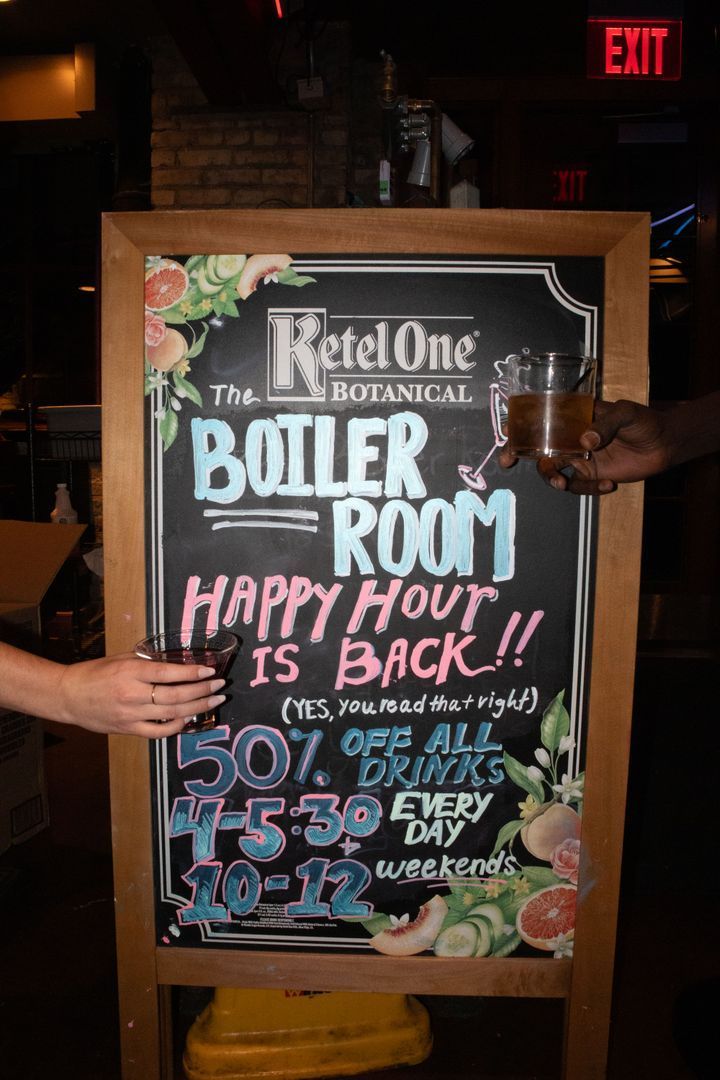 EXIT
EXIT
Ketel One®
BOTANICAL
The
BOILER
ROOM
HAPPY HOUR
IS BACK!!
(YES, you read that right)
50% OFF ALL
DRINKS
4-5:30 EVERY
DAY
+
10-12 weekends